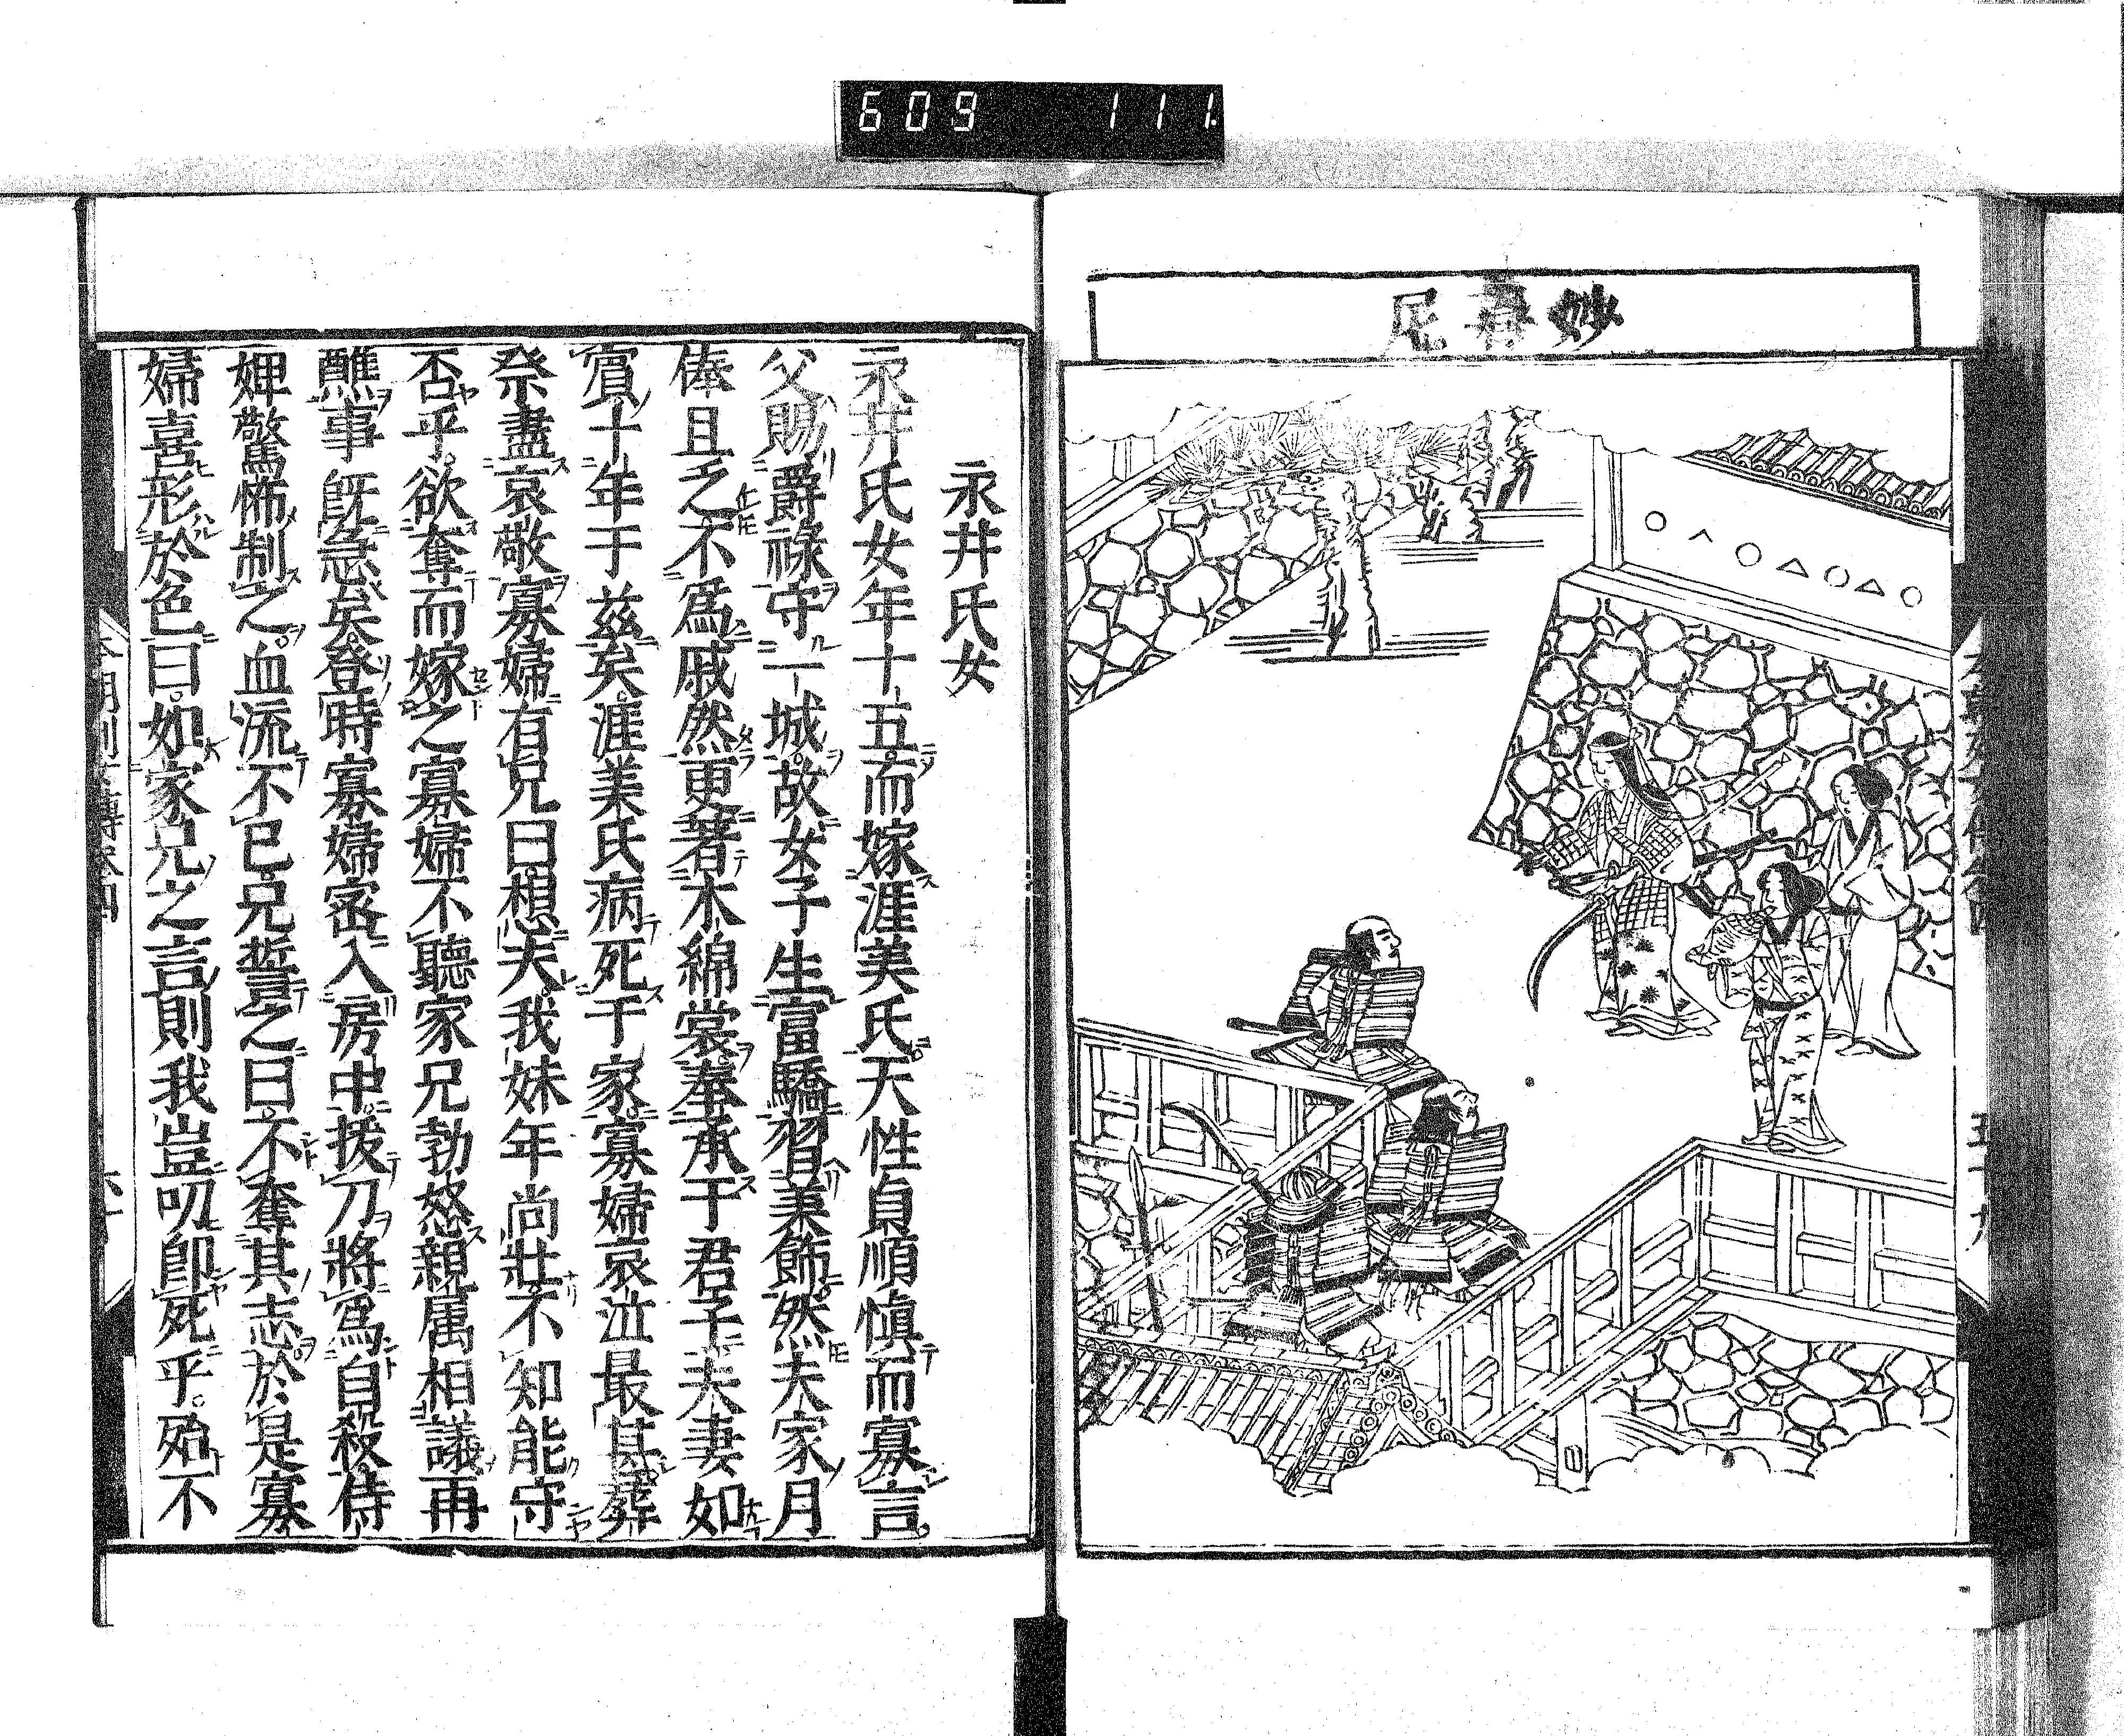 609 111
妙尋尼
永井氏女
永井氏女年十五而嫁渥美氏天性貞順愼而寡言
父賜爵祿守一城故女子生富驕習美飾然夫家月
俸且乏不爲戚然更著木綿裳奉承于君子夫妻如
賓十年于茲矣渥美氏病死于家寡婦哀泣最甚葬
祭盡哀敬寡婦有兄曰想夫我妹年尚壯不知能守
否乎欲奪而嫁之寡婦不聽家兄勃怒親属相議再
醮事既急矣登時寡婦密入房中拔刀將爲自殺侍
婢驚怖制之血流不已兄誓之曰不奪其志於是寡
婦喜形於色曰如家兄之言則我豈叨卽死乎殆不